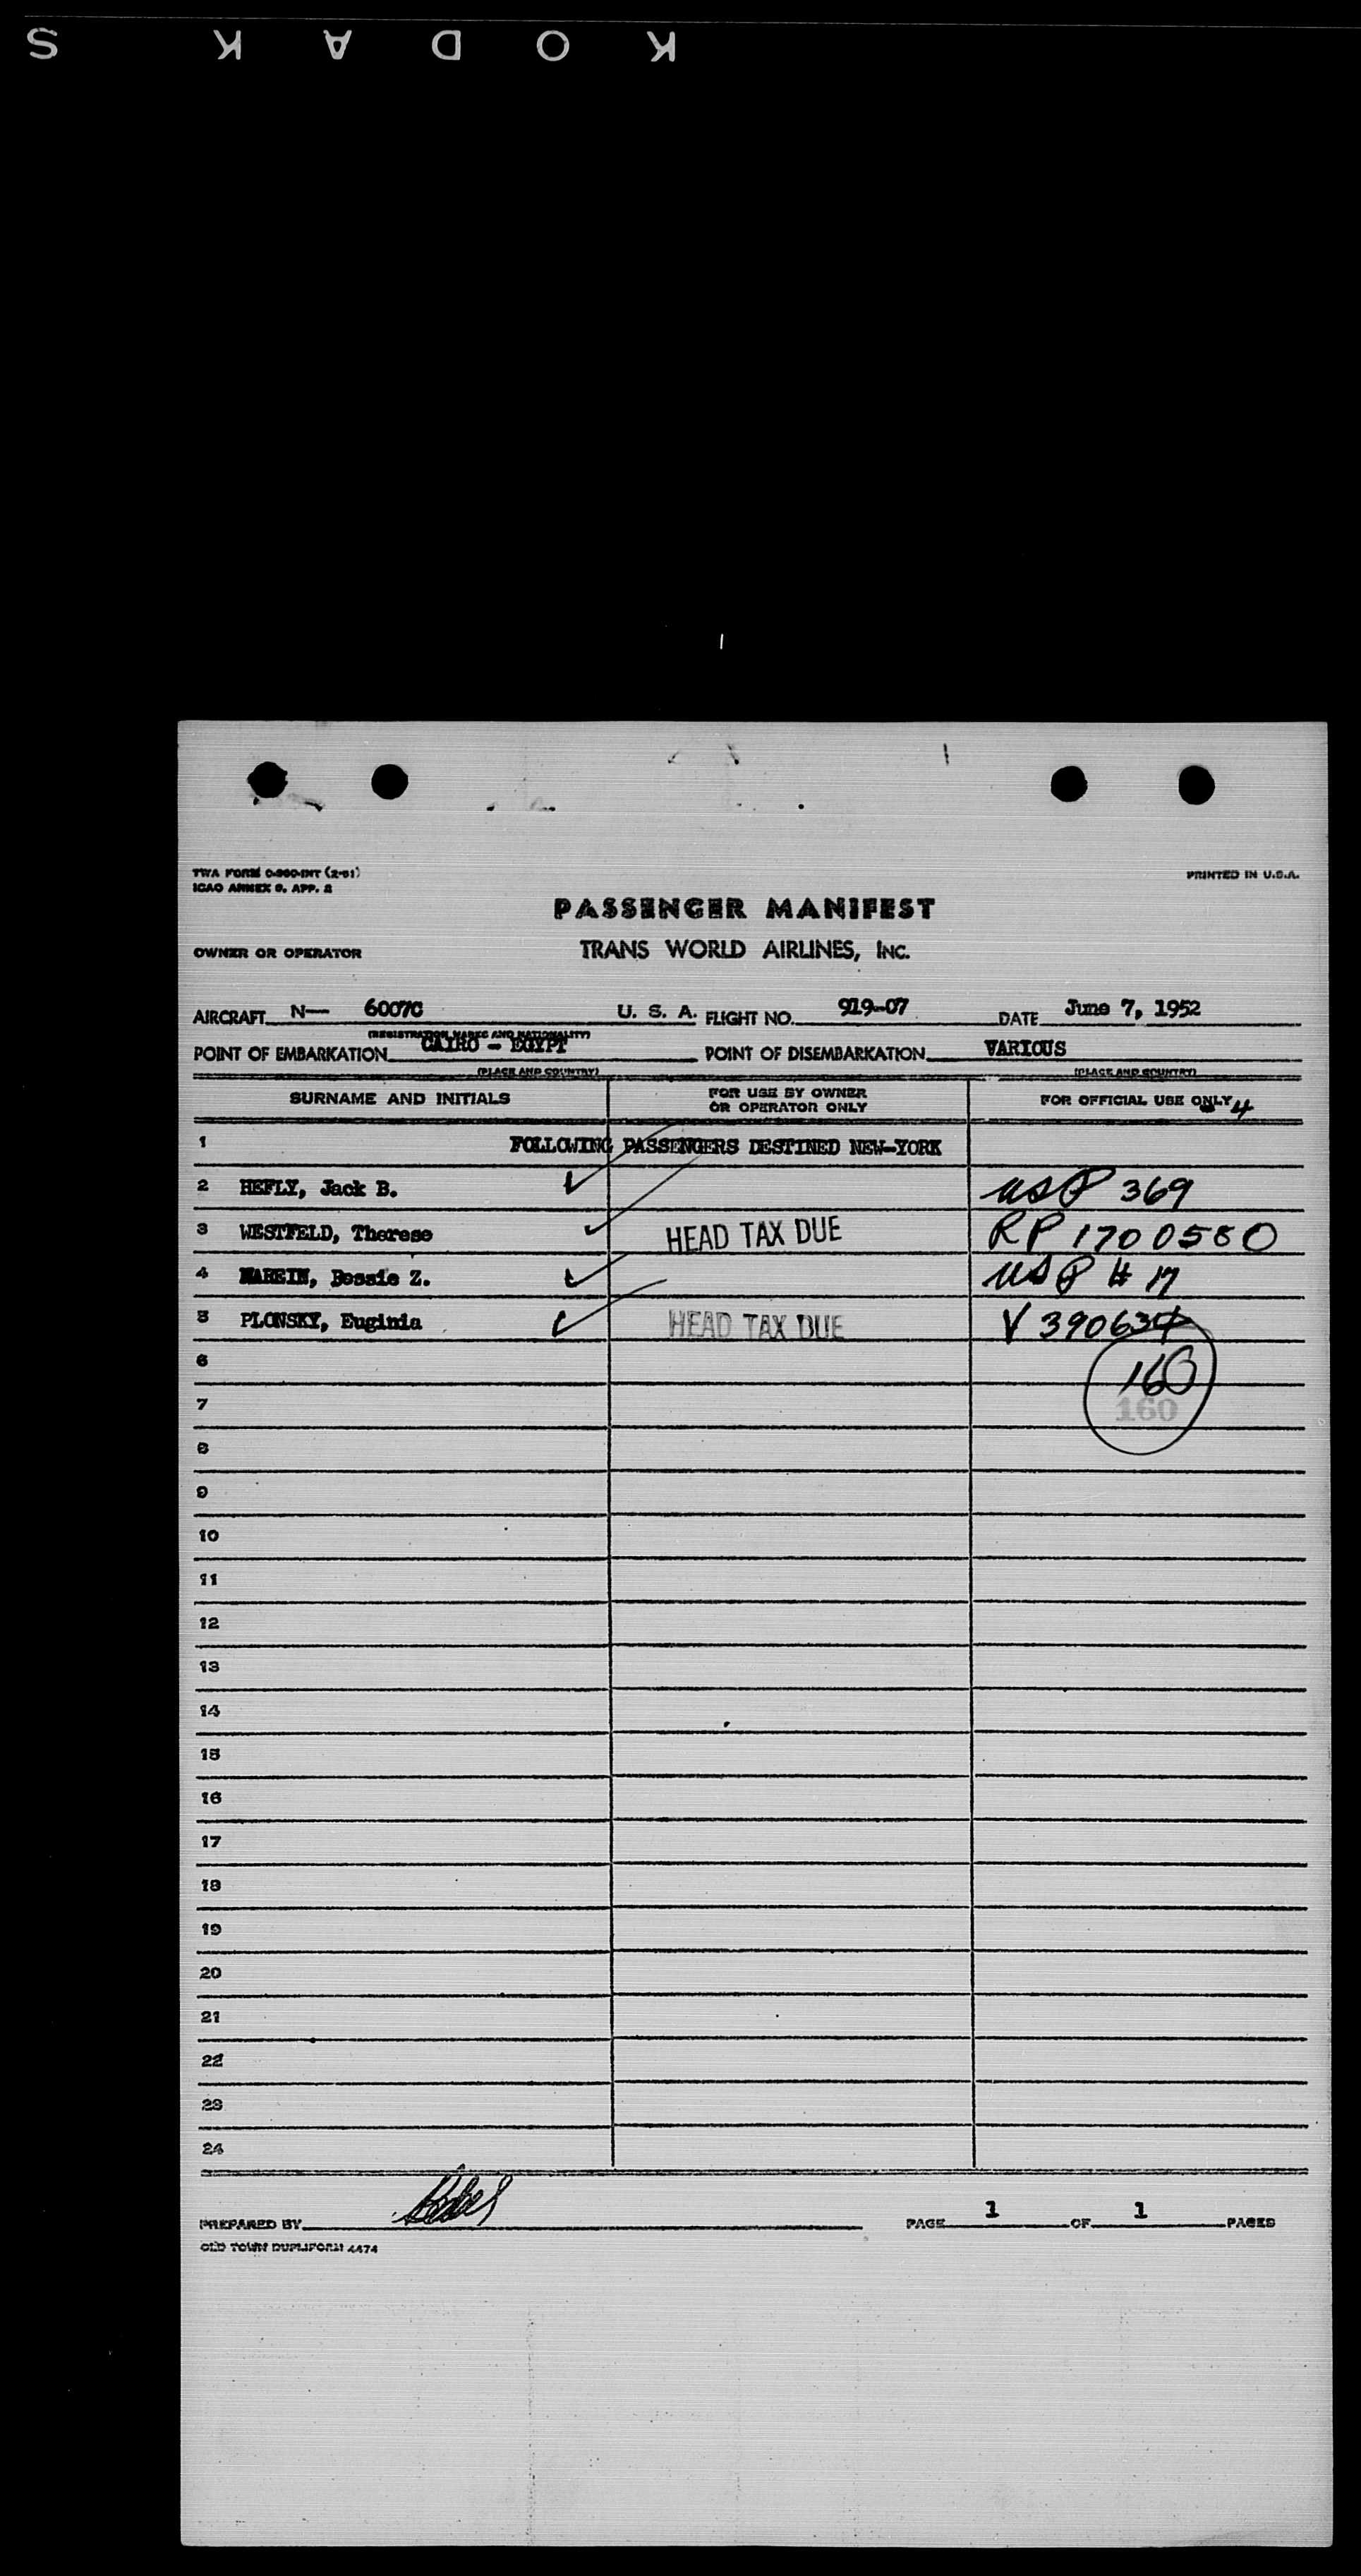 KODAK S
TWA FORM O-960-INT (2-51)
ICAO ANNEX 9, APP. 2
PRINTED IN U.S.A.
PASSENGER MANIFEST
OWNER OR OPERATOR TRANS WORLD AIRLINES, INC.
AIRCRAFT N— 6007C U. S. A. FLIGHT NO. 919-07 DATE June 7, 1952
(REGISTRATION MARKS AND NATIONALITY)
POINT OF EMBARKATION CAIRO - EGYPT POINT OF DISEMBARKATION VARIOUS
(PLACE AND COUNTRY) (PLACE AND COUNTRY)
SURNAME AND INITIALS FOR USE BY OWNER OR OPERATOR ONLY FOR OFFICIAL USE ONLY 4
1 FOLLOWING PASSENGERS DESTINED NEW-YORK
2 HEFLY, Jack B. USP 369
3 WESTFELD, Therese HEAD TAX DUE RP 1700580
4 MAREIN, Bessie Z. USP # 17
5 PLONSKY, Euginia HEAD TAX DUE V 390634
6 160
7 160
8
9
10
11
12
13
14
15
16
17
18
19
20
21
22
23
24
PREPARED BY PAGE 1 OF 1 PAGES
OLD TOWN DUPLIFORM 4474